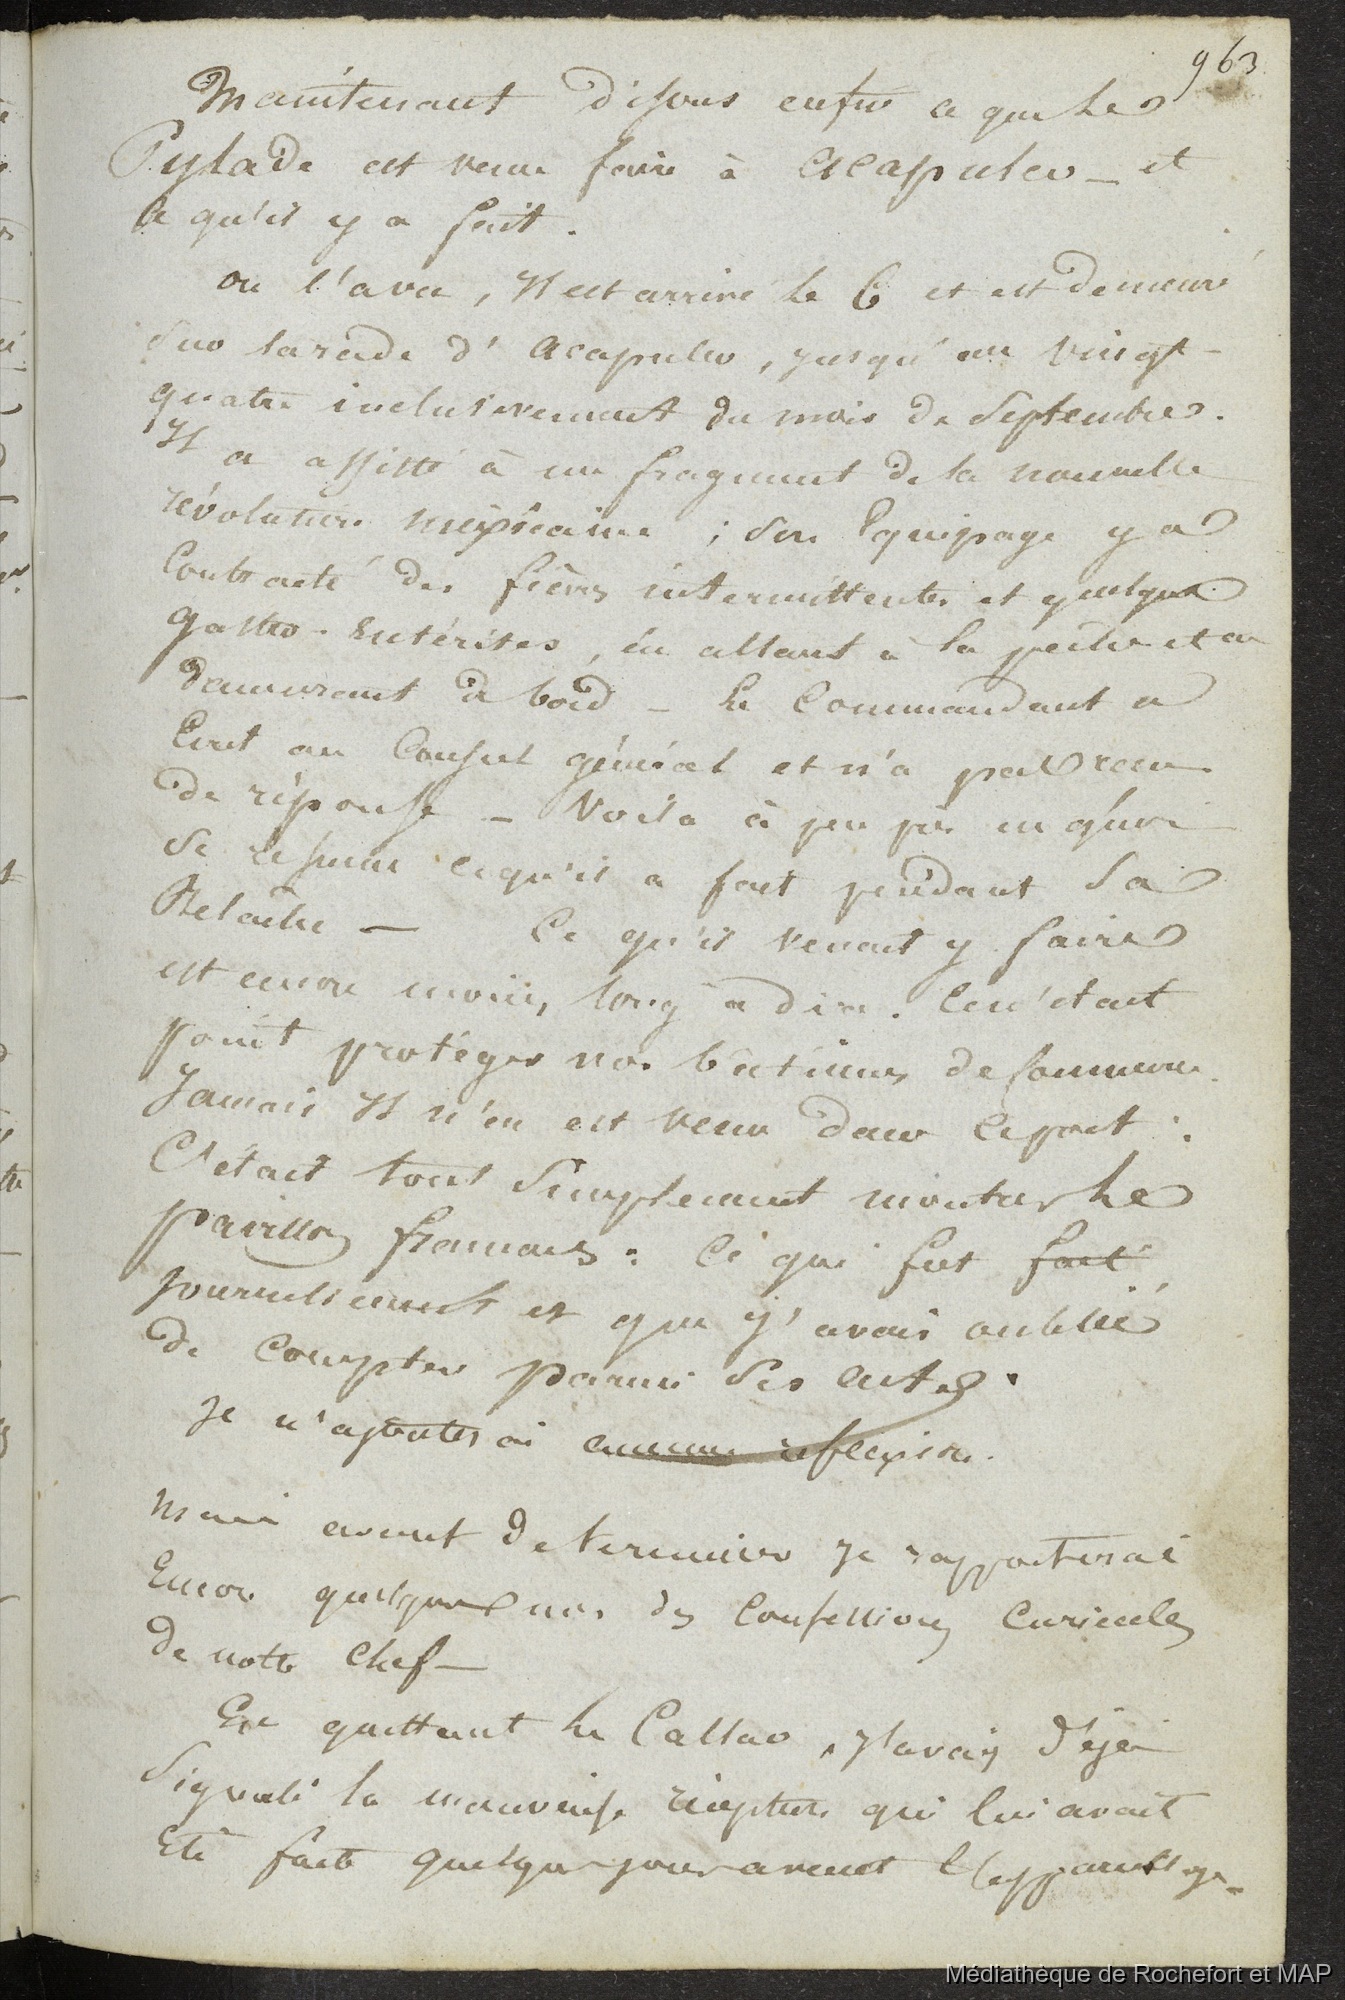 963
Maintenant disons enfin ce que le
Pylade est venu faire à Acapulco _ et
ce qu'il y a fait.
on l'a vu, Il est arrivé le 6 et est demeuré
sur la rade d'Acapulco, jusqu'au vingt-
quatre inclusivement du mois de Septembre.
Il a assisté à un fragment de la nouvelle
révolution mexicaine ; son Equipage y a
Contracté des fièvres intermittentes et quelques
gastro-Entérites, en allant à la pêche et en
demeurant à bord _ le Commandant a
Ecrit au Consul général et n'a pas reçu
de réponse _ Voila à peu près en quoi
se résume ce qu'il a fait pendant sa
Relâche — Ce qu'il venait y faire
est encore moins long à dire. Ce n'était
point protéger nos bâtimens de Commerce.
Jamais Il n'en est venu dans le port :
C'était tout Simplement montrer le
pavillon français : Ce qui fut fait
journellement et que j'avais oublié
de Compter parmi ses actes.
Je n'ajouterai aucune reflexion.
Mais avant de terminer je rapporterai
Encore quelques unes des Confessions
de notre Chef —
En quittant le Callao, J'avais déjà
Signalé la mauvaise réception qui lui avait
Eté faite quelques jours avant l'appareillage.
Médiathèque de Rochefort et MAP